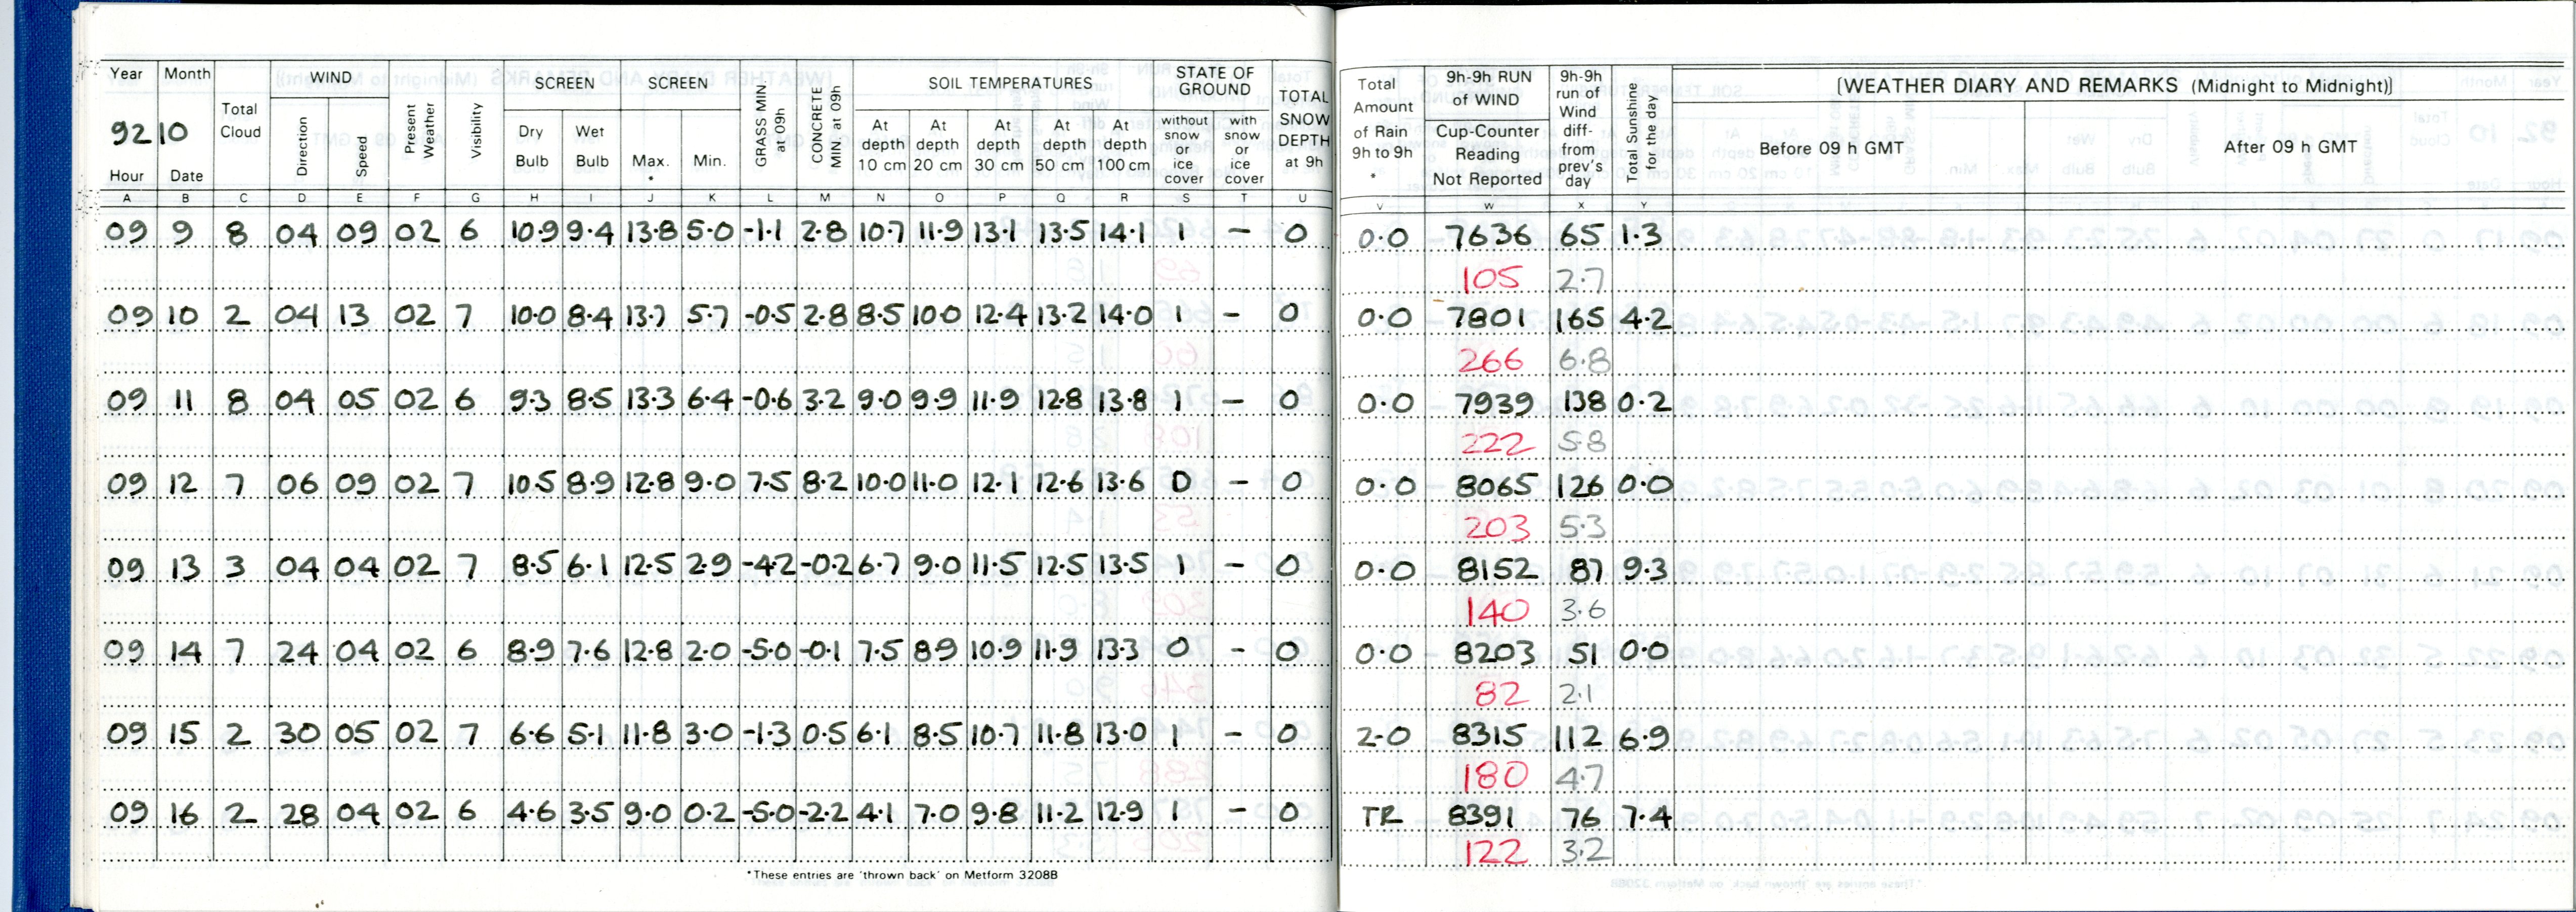 Year Month WIND SCREEN SCREEN SOIL TEMPERATURES STATE OF GROUND
92 10 Total Cloud Direction Speed Present Weather Visibility Dry Bulb Wet Bulb Max. * Min. GRASS MIN at 09h CONCRETE MIN. at 09h At depth 10 cm At depth 20 cm At depth 30 cm At depth 50 cm At depth 100 cm without snow or ice cover with snow or ice cover TOTAL SNOW DEPTH at 9h
Hour Date
A B C D E F G H I J K L M N O P Q R S T U
09 9 8 04 09 02 6 10.9 9.4 13.8 5.0 -1.1 2.8 10.7 11.9 13.1 13.5 14.1 1 – 0
09 10 2 04 13 02 7 10.0 8.4 13.7 5.7 -0.5 2.8 8.5 10.0 12.4 13.2 14.0 1 – 0
09 11 8 04 05 02 6 9.3 8.5 13.3 6.4 -0.6 3.2 9.0 9.9 11.9 12.8 13.8 1 – 0
09 12 7 06 09 02 7 10.5 8.9 12.8 9.0 7.5 8.2 10.0 11.0 12.1 12.6 13.6 0 – 0
09 13 3 04 04 02 7 8.5 6.1 12.5 2.9 -4.2 -0.2 6.7 9.0 11.5 12.5 13.5 1 – 0
09 14 7 24 04 02 6 8.9 7.6 12.8 2.0 -5.0 -0.1 7.5 8.9 10.9 11.9 13.3 0 – 0
09 15 2 30 05 02 7 6.6 5.1 11.8 3.0 -1.3 0.5 6.1 8.5 10.7 11.8 13.0 1 – 0
09 16 2 28 04 02 6 4.6 3.5 9.0 0.2 -5.0 -2.2 4.1 7.0 9.8 11.2 12.9 1 – 0
*These entries are 'thrown back' on Metform 3208B
Total Amount of Rain 9h to 9h * 9h-9h RUN of WIND Cup-Counter Reading Not Reported 9h-9h run of Wind diff- from prev's day Total Sunshine for the day [WEATHER DIARY AND REMARKS (Midnight to Midnight)]
Before 09 h GMT After 09 h GMT
V W X Y
0.0 7636 65 1.3
105 2.7
0.0 7801 165 4.2
266 6.8
0.0 7939 138 0.2
222 5.8
0.0 8065 126 0.0
203 5.3
0.0 8152 87 9.3
140 3.6
0.0 8203 51 0.0
82 2.1
2.0 8315 112 6.9
180 4.7
TR 8391 76 7.4
122 3.2